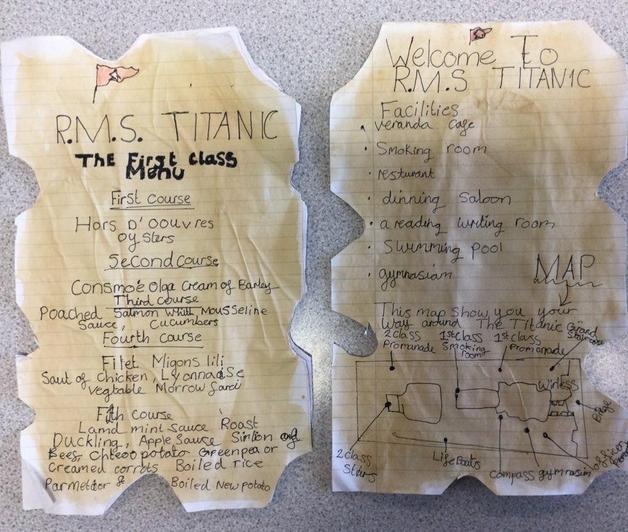 R.M.S. TITANIC
The First Class
Menu
First Course
Hors D'oouvres
oysters
Second Course
Consmot Olga Cream of Earley
Third course
Poached Salmon Whill Mousseline
Sauce, Cucumbers
Fourth course
Filet Migons lili
Saut of Chicken, Lyonnaise
vegtable Morrow farci
Fifth course
Lamd mint Sauce Roast
Duckling, Apple Sauce Sirlion of
Bees potato Greenpea or
Creamed corrots Boiled rice
Boiled New potato
Welcome To
R.M.S TITANIC
Facilities
• veranda Cafe
• Smoking room
• resturant
• dinning Saloon
• a reading writing room
• Swimming pool
• gymnasiam
MAP
This map show you your
way around The Titanic
2 class
Promanade
1st class
Smoking
room
1st class
Promanade
Grand
Staircase
Wirless
Bridge
2 class
Stairs
Lifeboats
Compass
gymnasium
officers